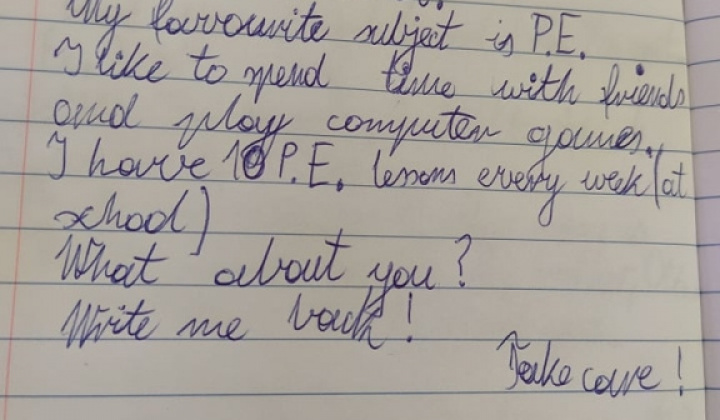 My favourite subject is P.E.
I like to spend time with friends
and play computer games.
I have 10 P.E. lessons every week (at
school)
What about you?
Write me back!
Take care!